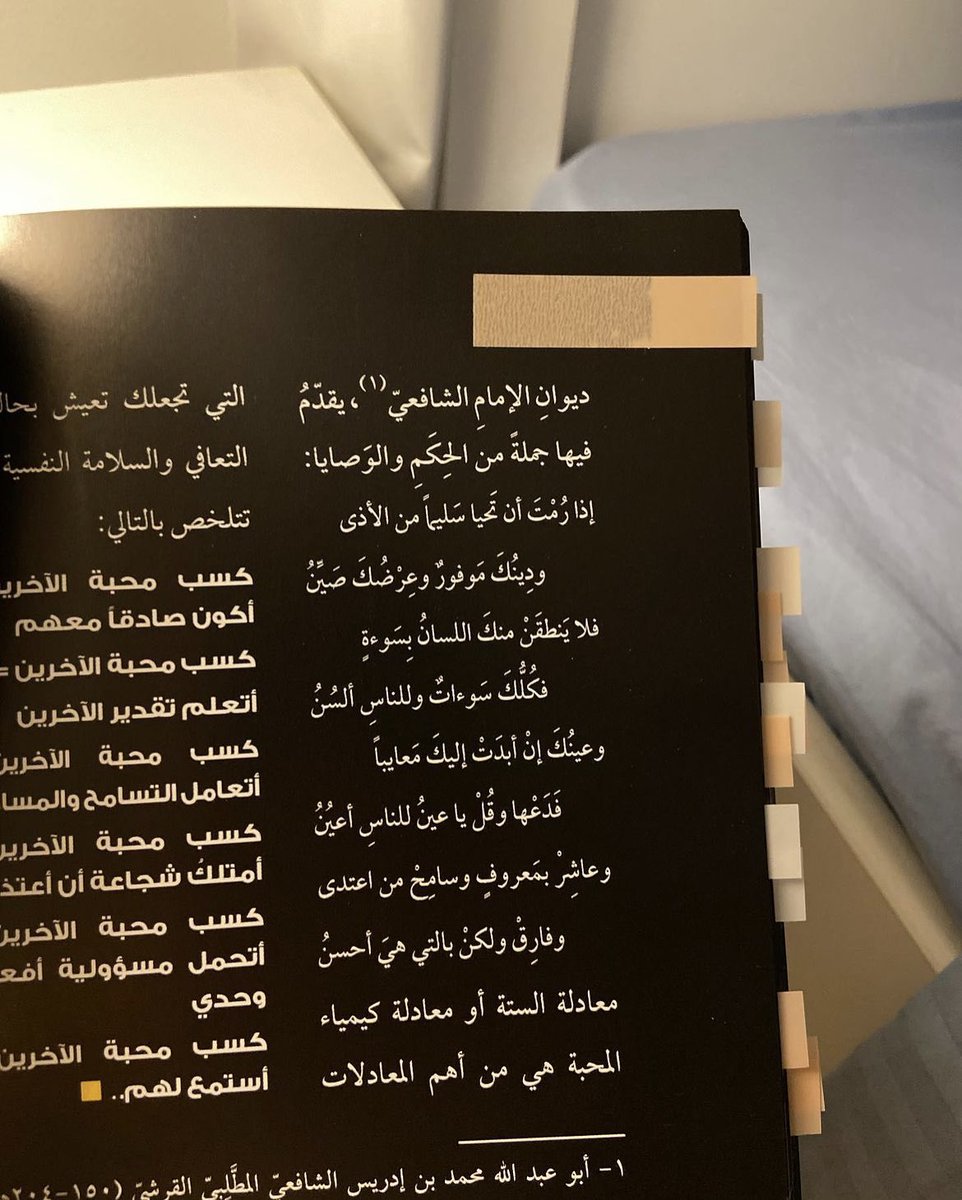 ديوانِ الإمامِ الشافعيّ(١)، يقدّمُ
فيها جملةً من الحِكَمِ والوَصايا:
إذا رُمْتَ أن تَحيا سَليماً من الأذى
ودِينُكَ مَوفورٌ وعِرْضُكَ صَيِّنُ
فلا يَنطقَنْ منكَ اللسانُ بِسَوءةٍ
فكُلُّكَ سَوءاتٌ وللناسِ ألسُنُ
وعينُكَ إنْ أبدَتْ إليكَ مَعايباً
فَدَعْها وقُلْ يا عينُ للناسِ أعيُنُ
وعاشِرْ بمَعروفٍ وسامِحْ من اعتدى
وفارِقْ ولكنْ بالتي هيَ أحسنُ
معادلة الستة أو معادلة كيمياء
المحبة هي من أهم المعادلات
التي تجعلك تعيش
التعافي والسلامة النفسية
تتلخص بالتالي:
كسب محبة
أكون صادقاً معهم
كسب محبة الآخرين =
أتعلم تقدير الآخرين
كسب محبة
أتعامل التسامح
كسب محبة
أمتلكُ شجاعة أن
كسب محبة
أتحمل مسؤولية
وحدي
كسب محبة
أستمع لهم..
١- أبو عبد الله محمد بن إدريس الشافعيّ المطَّلِبيّ القرشيّ (١٥٠-٢٠٤